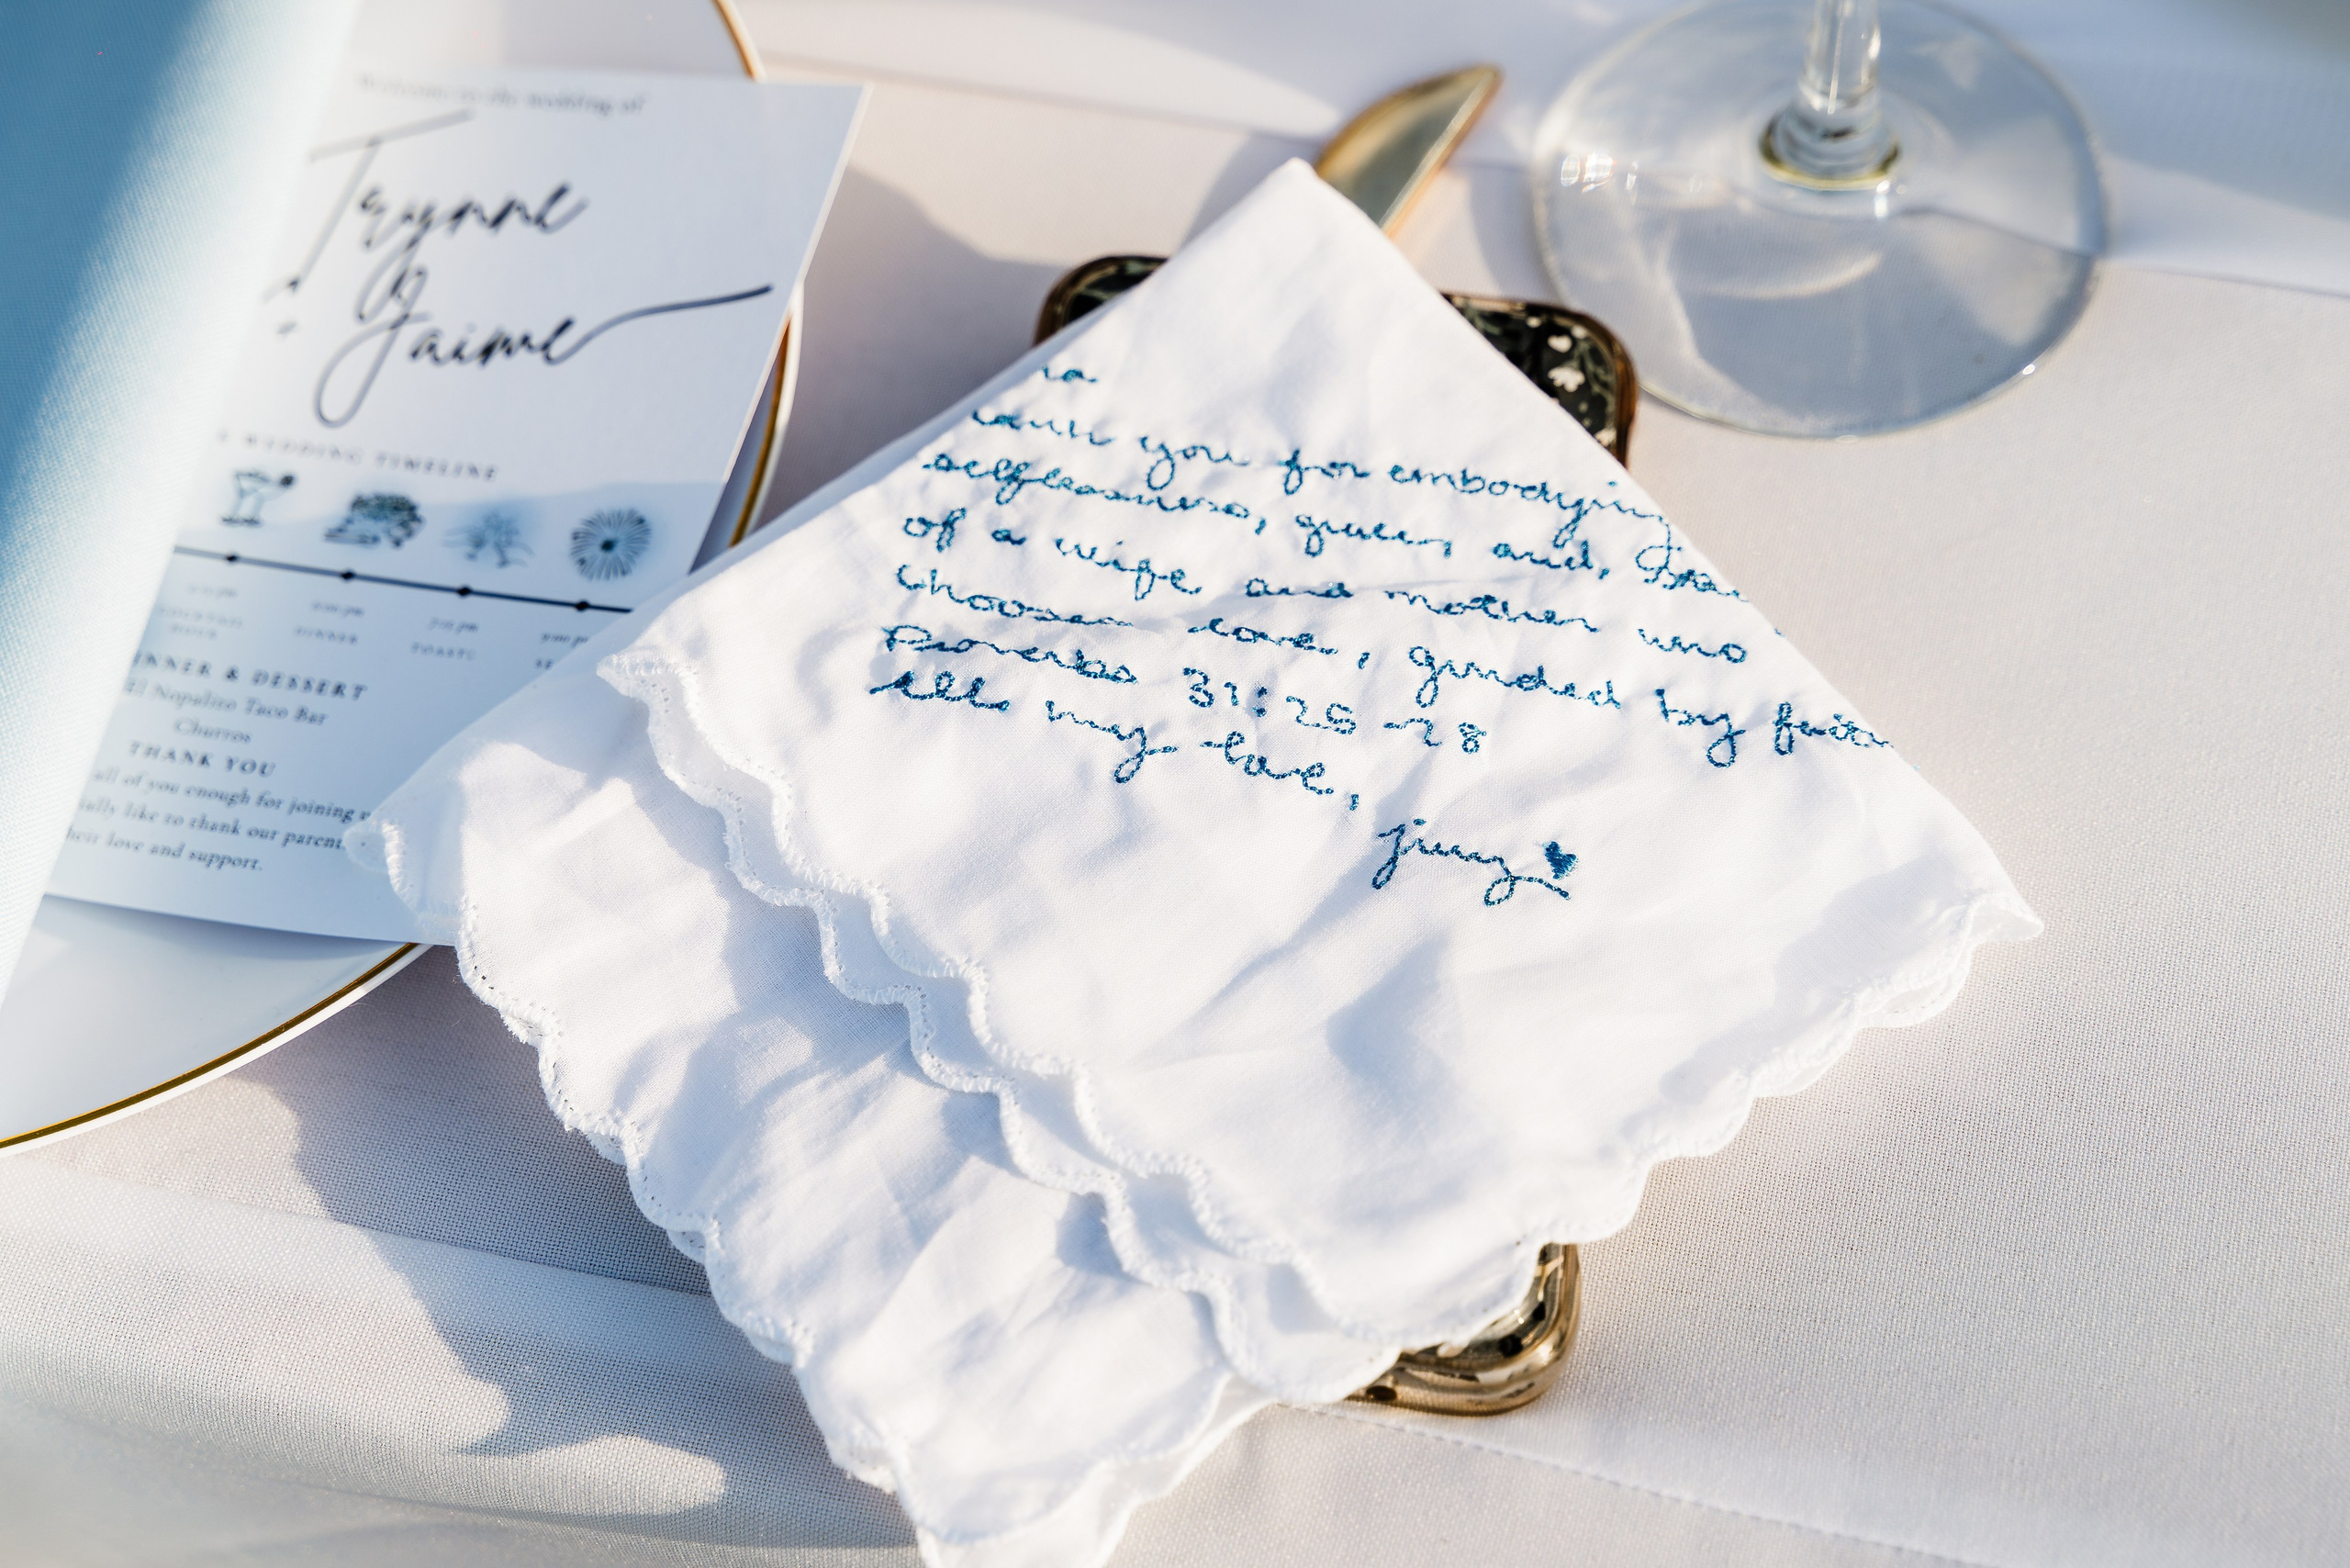 Welcome to the wedding of
Trynne
&
Jaime
WEDDING TIMELINE
DINNER
TOASTS
DINNER & DESSERT
El Nopalito Taco Bar
Churros
THANK YOU
all of you enough for joining
like to thank our parent
love and support.
you for embodying
selflessness, grace, and,
of a wife and mother who
chooses love, guided by faith
Proverbs 31:25-28
all my love,
jinny